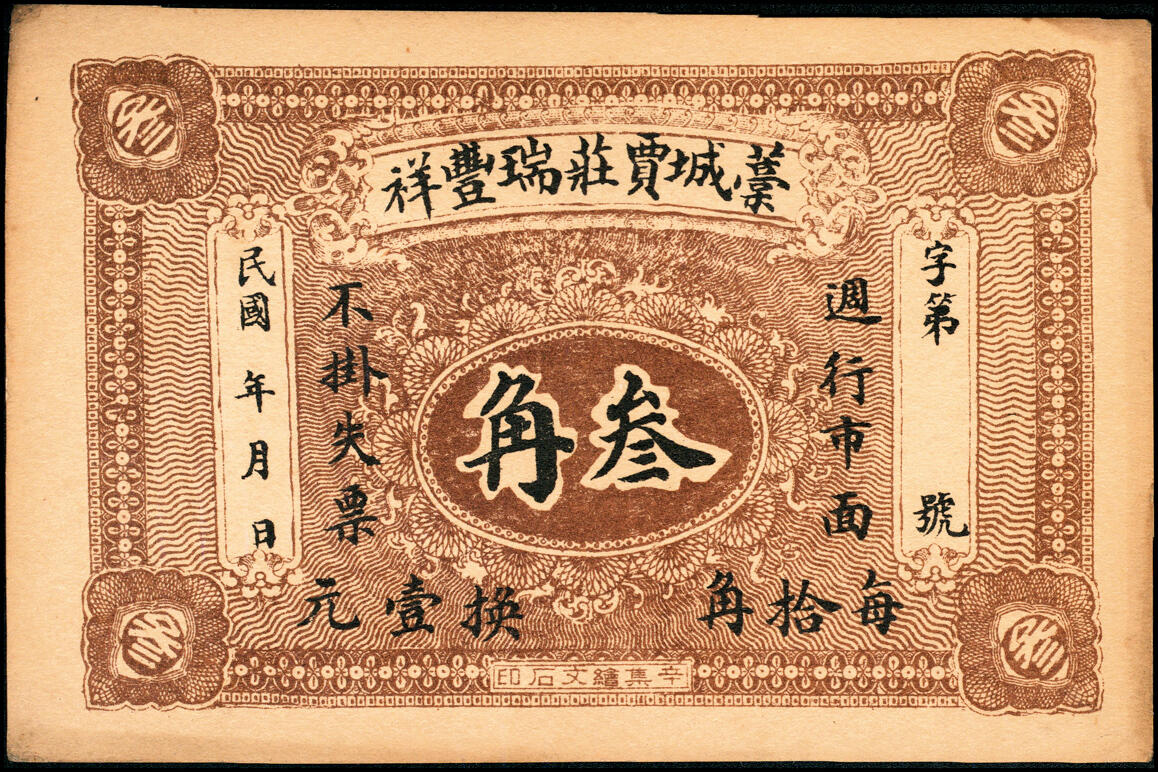 藁城賈莊瑞豐祥
字第 號
週行市面
叁角
不掛失票
民國 年 月 日
每拾角換壹元
辛集繪文石印